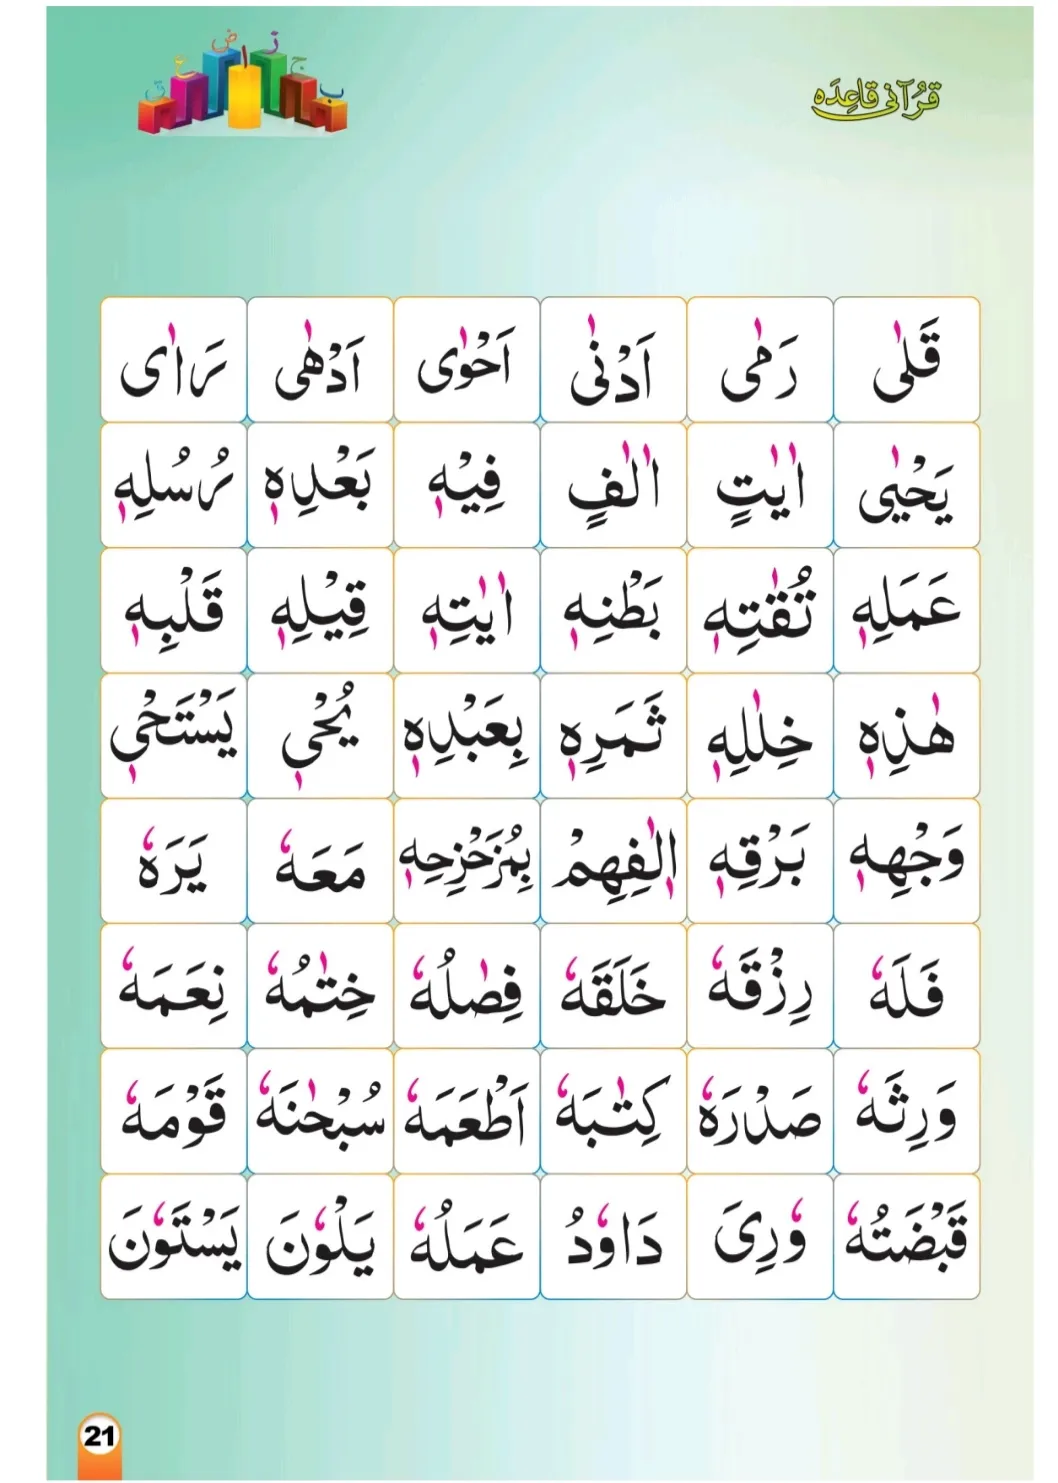 قُرآنی قَاعِدَہ
ق ع ض ا ز ج ب
قَلٰى رَمٰى اَدْنٰى اَحْوٰى اَدْهٰى رَاٰى
يَحْيٰى اٰيٰتٍ اٰلٰفٍ فِيْهٖ بَعْدِهٖ رُسُلِهٖ
عَمَلِهٖ تُقٰتِهٖ بَطْنِهٖ اٰيٰتِهٖ قِيْلِهٖ قَلْبِهٖ
هٰذِهٖ خِلٰلِهٖ ثَمَرِهٖ بِعَبْدِهٖ يُحْىٖ يَسْتَحْىٖ
وَجْهِهٖ بَرْقِهٖ اٖلٰفِهِمْ بِمُزَحْزِحِهٖ مَعَهٗ يَرَهٗ
فَلَهٗ رِزْقَهٗ خَلَقَهٗ فِصٰلُهٗ خِتٰمُهٗ نِعَمَهٗ
وَرِثَهٗ صَدْرَهٗ كِتٰبَهٗ اَطْعَمَهٗ سُبْحٰنَهٗ قَوْمَهٗ
قَبْضَتُهٗ وٗرِىَ دَاوٗدُ عَمَلُهٗ يَلْوٗنَ يَسْتَوٗنَ
21